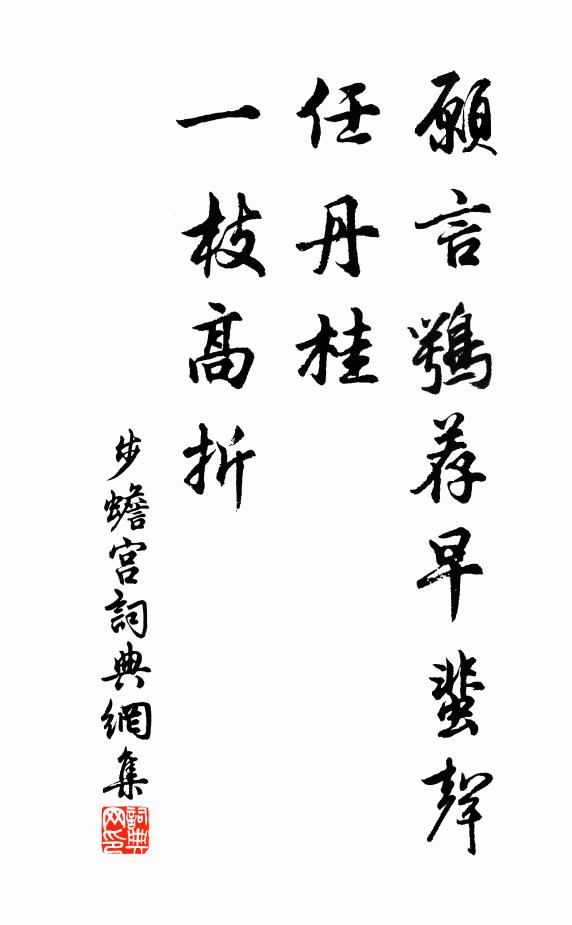 願言鶚荐早蜚聲
任丹桂
一枝高折
步蟾宮詞典網集
詞典网印